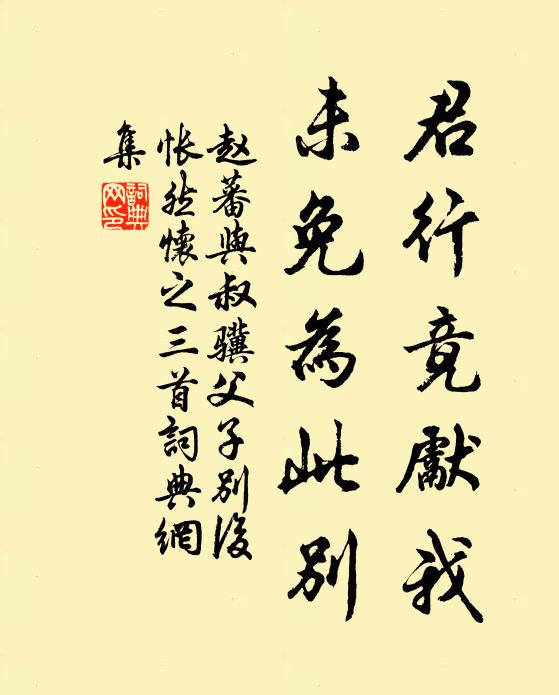 君行竟獻我
未免為此別
赵蕃與叔驥父子別後
悵然懷之三首詞典網
集
詞典网印